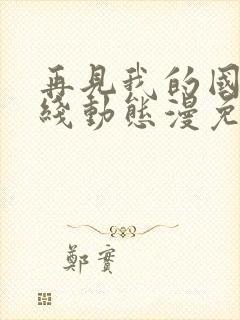 再見我的國
綫動態漫免
鄭實